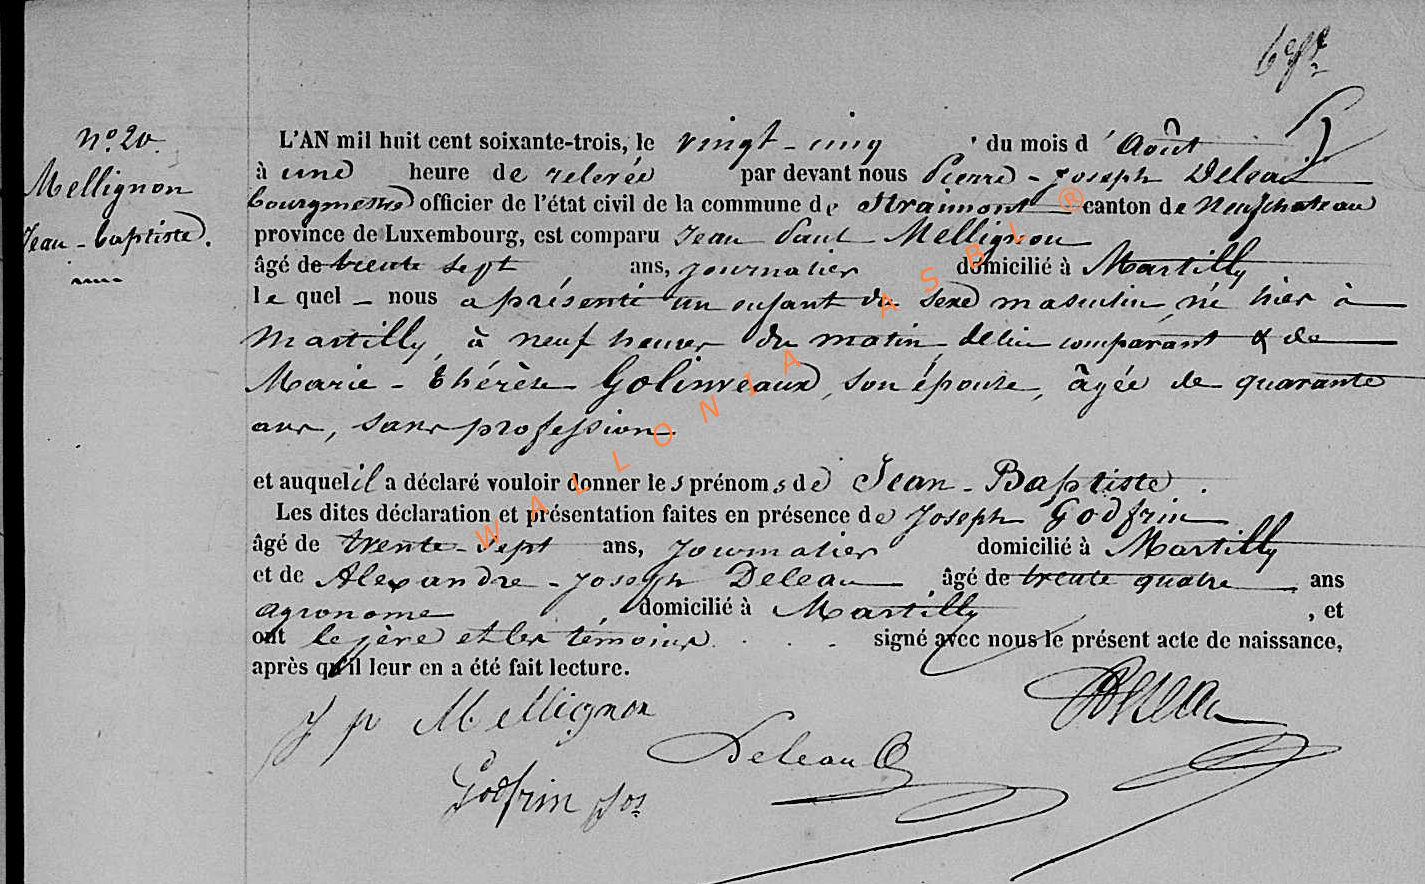 6e ft
no. 20.
Mellignon
Jean-baptiste.
L'AN mil huit cent soixante-trois, le vingt-cinq du mois d'Août
à une heure de relevée par devant nous Pierre-Joseph Deleau
bourgmestre officier de l'état civil de la commune de Straimont canton de Neufchateau
province de Luxembourg, est comparu Jean Paul Mellignon
âgé de trente sept ans, journalier domicilié à Martilly
le quel - nous a présenté un enfant du sexe masculin, né hier à
Martilly, à neuf heures du matin, de lui comparant & de
Marie-Thérèse Golinveaux, son épouse, âgée de quarante
ans, sans profession.
et auquel il a déclaré vouloir donner les prénoms de Jean-Baptiste.
Les dites déclaration et présentation faites en présence de Joseph Godfrin
âgé de trente-sept ans, journalier domicilié à Martilly
et de Alexandre-Joseph Deleau âgé de trente quatre ans
agronome domicilié à Martilly, et
ont le père et les témoins signé avec nous le présent acte de naissance,
après qu'il leur en a été fait lecture.
J p Mellignon
Deleau
Deleau
Godfrin Jos
WALLONIA ASBL ®